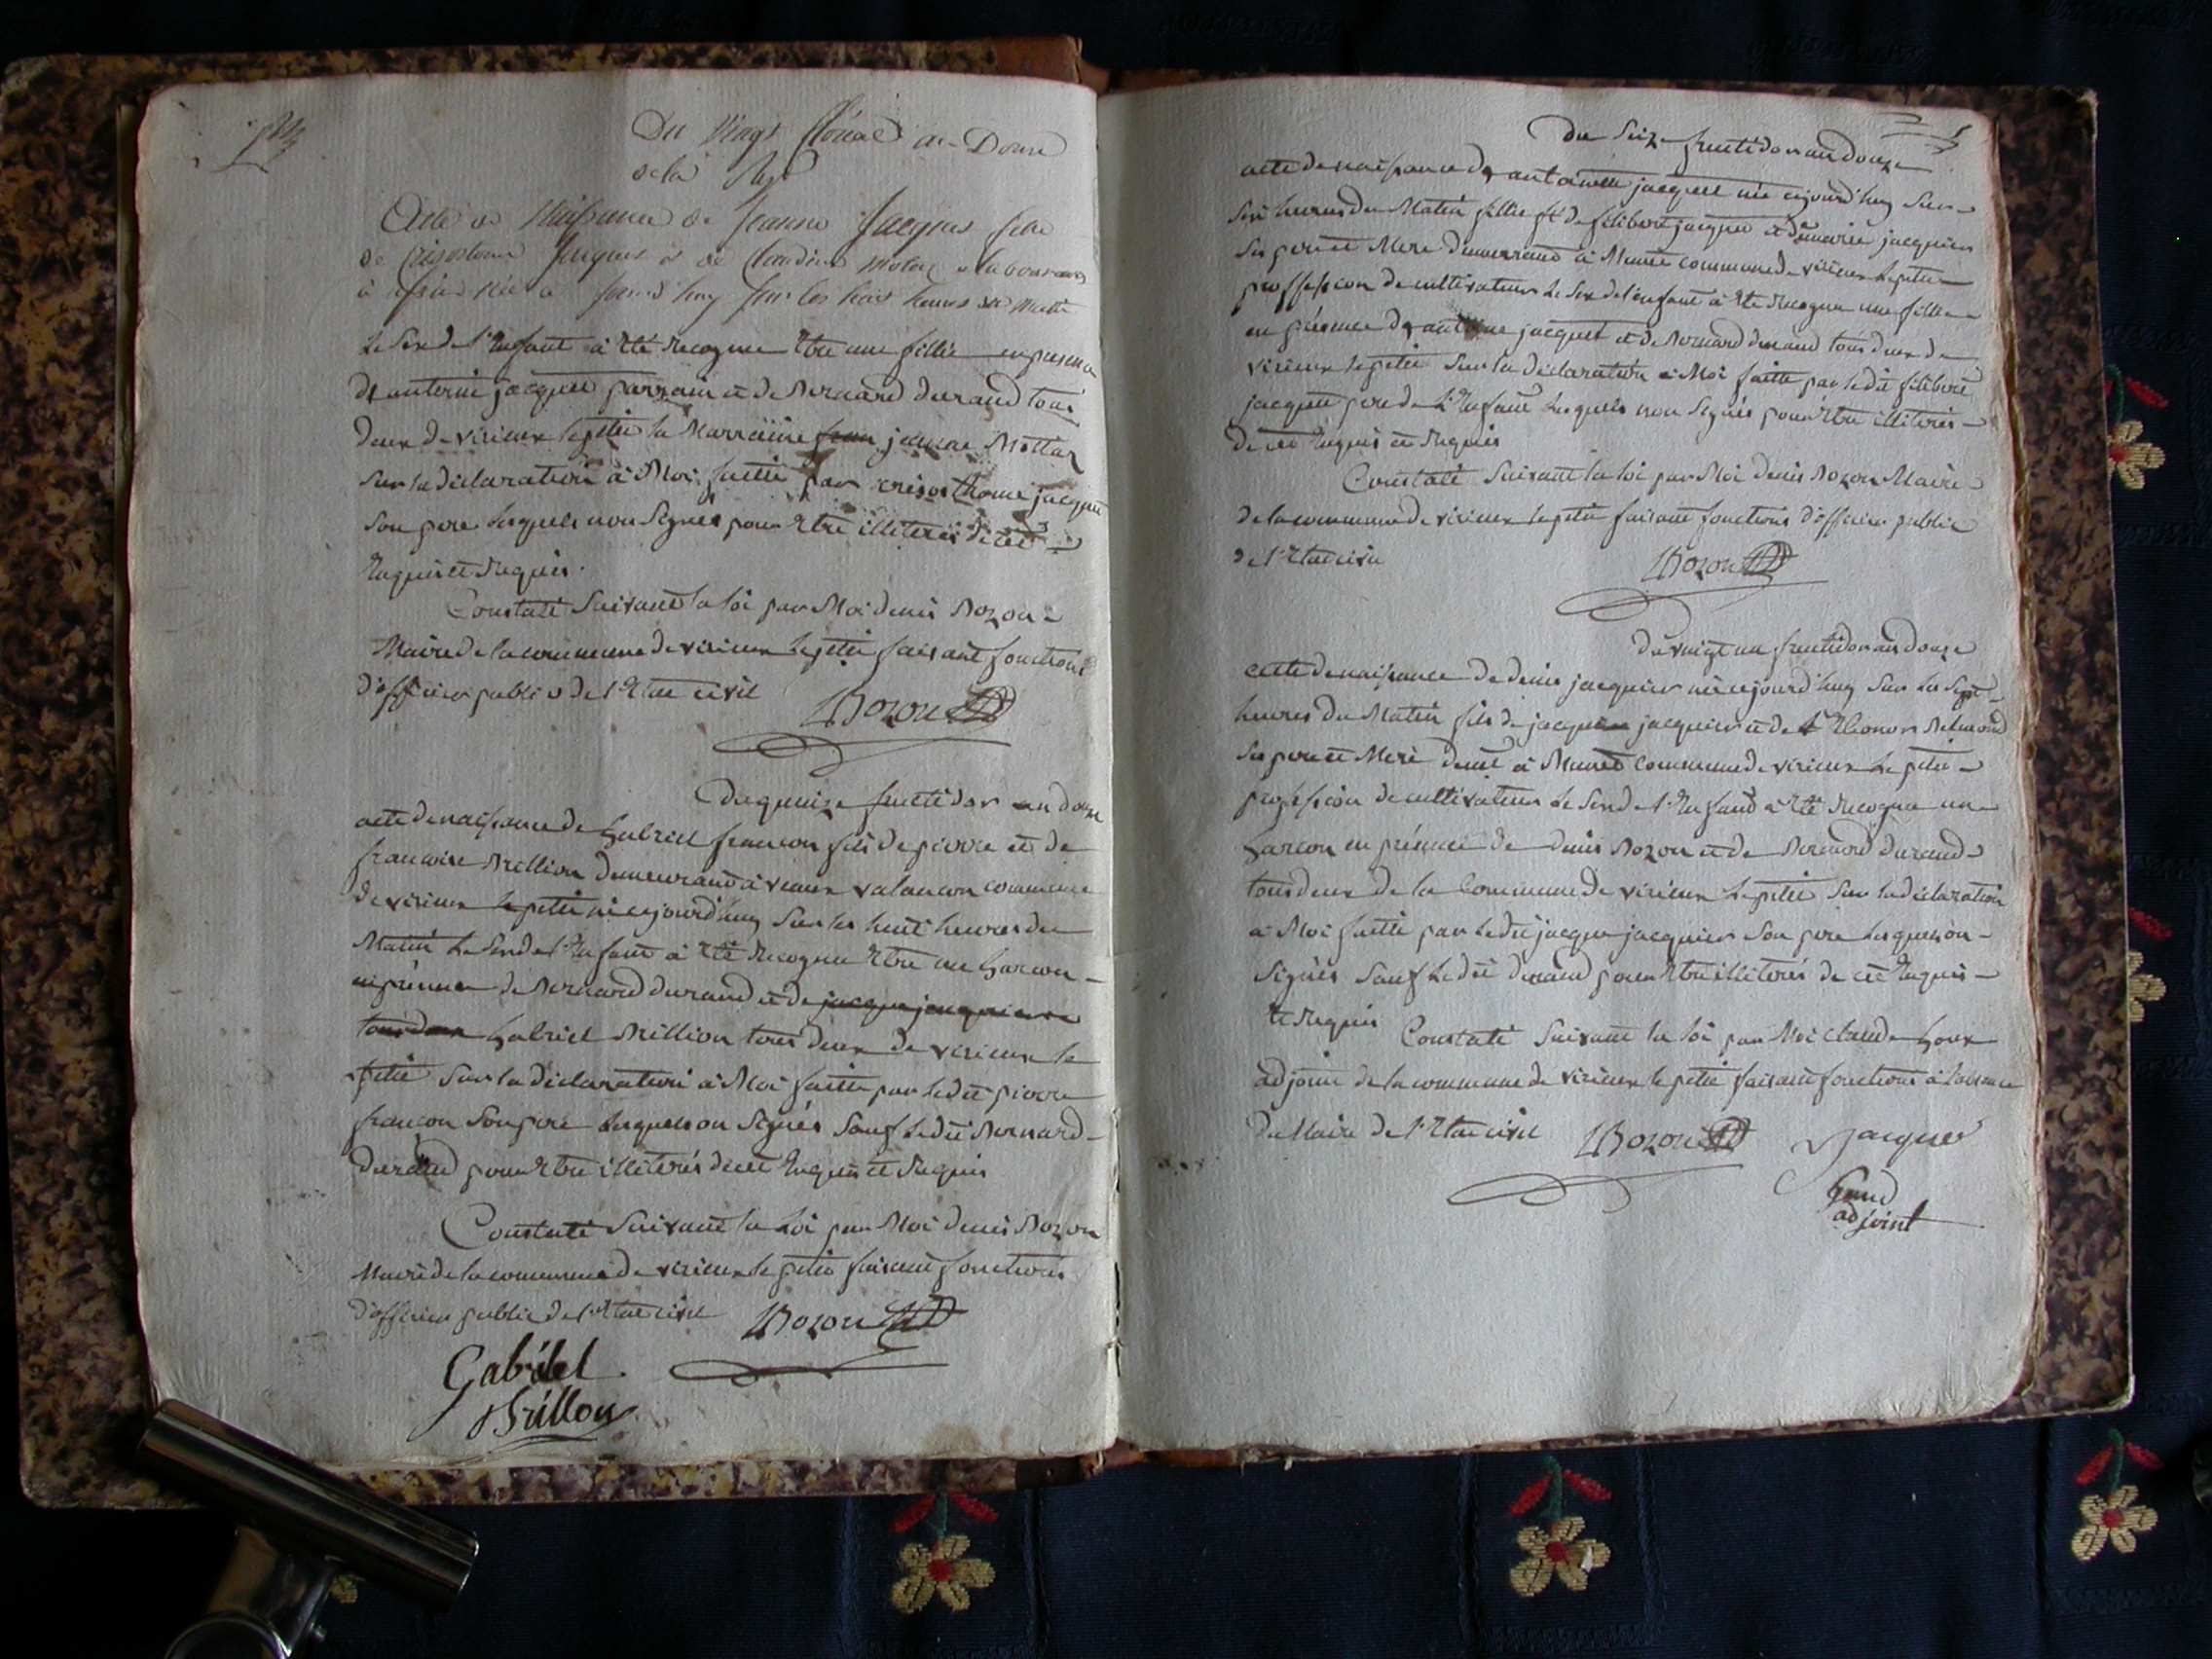 Du vingt floreal an Douze
de la Rep
Acte de Naissance de Jeanne Jacques fille
de Crisostome Jacques et de Claudine Motaz laboureurs
à née a jourd'huy sur les trois heures du matin
Le Sexe de l'Enfant à Eté Recognu Etre une fillie en presence
d antoine jacques parrain et de Bernard durand tous
deux de virieux le petit la Marraine jeanne Mottaz
Sur la déclaration à Moi faitte par crisosthome jacques
Son pere lesquels non Signes pour Etre illiterés de ce
Enquis et Requis.
Constaté Suivant la loi par Moi denis Bozon
Maire de la commune de virieux le petit faisant fonctions
d'officier public de l'Etat civil Bozon
Du quinze fructidor an douze
acte de naissance de Gabriel francon fils de pierre et de
francoise Brillion demeurant à vaux valancon commune
de virieux le petit né cejourd'huy Sur les huit heures du
Matin Le Sexe de l'Enfant à Eté Recognu Etre un Garcon
en présence de Bernard durand et de jacque jacquier
tous deux Gabriel Brillion tous deux de virieux le
petit Sur la déclaration à Moi faitte par le dit pierre
francon Son pere Lesquels on Signés Sauf le dit Bernard
Durand pour Etre illiterés de ce Enquis et Requis
Constaté Suivant la Loi par Moi denis Bozon
Maire de la commune de virieux le petit faisant fonctions
d'officier public de l'Etat civil Bozon
Gabriel
Brillon
du Seize fructidor an douze
acte de naissance d antoinette jacquet née cejourd'huy Sur
Six heures du Matin fillie de felibert jacquet et de marie jacquier
Ses pere et Mere demeurant à Munet commune de virieux le petit
proffession de cultivateur Le Sexe de l'enfant à Eté Recognu une fillie
en présence d antoine jacquet et de Bernard durand tous deux de
virieux le petit Sur la déclaration à Moi faitte par le dit felibert
jacquet pere de L'Enfant Lesquels non Signés pour Etre illiterés
de ce Enquis et Requis
Constaté Suivant la loi par Moi denis Bozon Maire
de la commune de virieux le petit faisant fonctions d'officier public
de l'Etat civil Bozon
du vingt un fructidor an douze
acte de naissance de denis jacquier né cejourd'huy Sur les Sept
heures du Matin fils de jacque jacquier et de Eleonor
Ses pere et Mere demt à Munet commune de virieux le petit
profession de cultivateur Le Sexe de l'Enfant à Eté Recognu un
Garcon en présence de denis Bozon et de Bernard durand
tous deux de la Commune de virieux Le petit Sur la déclaration
à Moi faitte par le dit jacque jacquier Son pere Lesquels on
Signés Sauf le dit durand pour Etre illiterés de ce Enquis
et Requis Constaté Suivant la loi par Moi claude
adjoint de la commune de virieux le petit faisant fonctions à labsence
du Maire de l'Etat civil Bozon Jacquier
adjoint